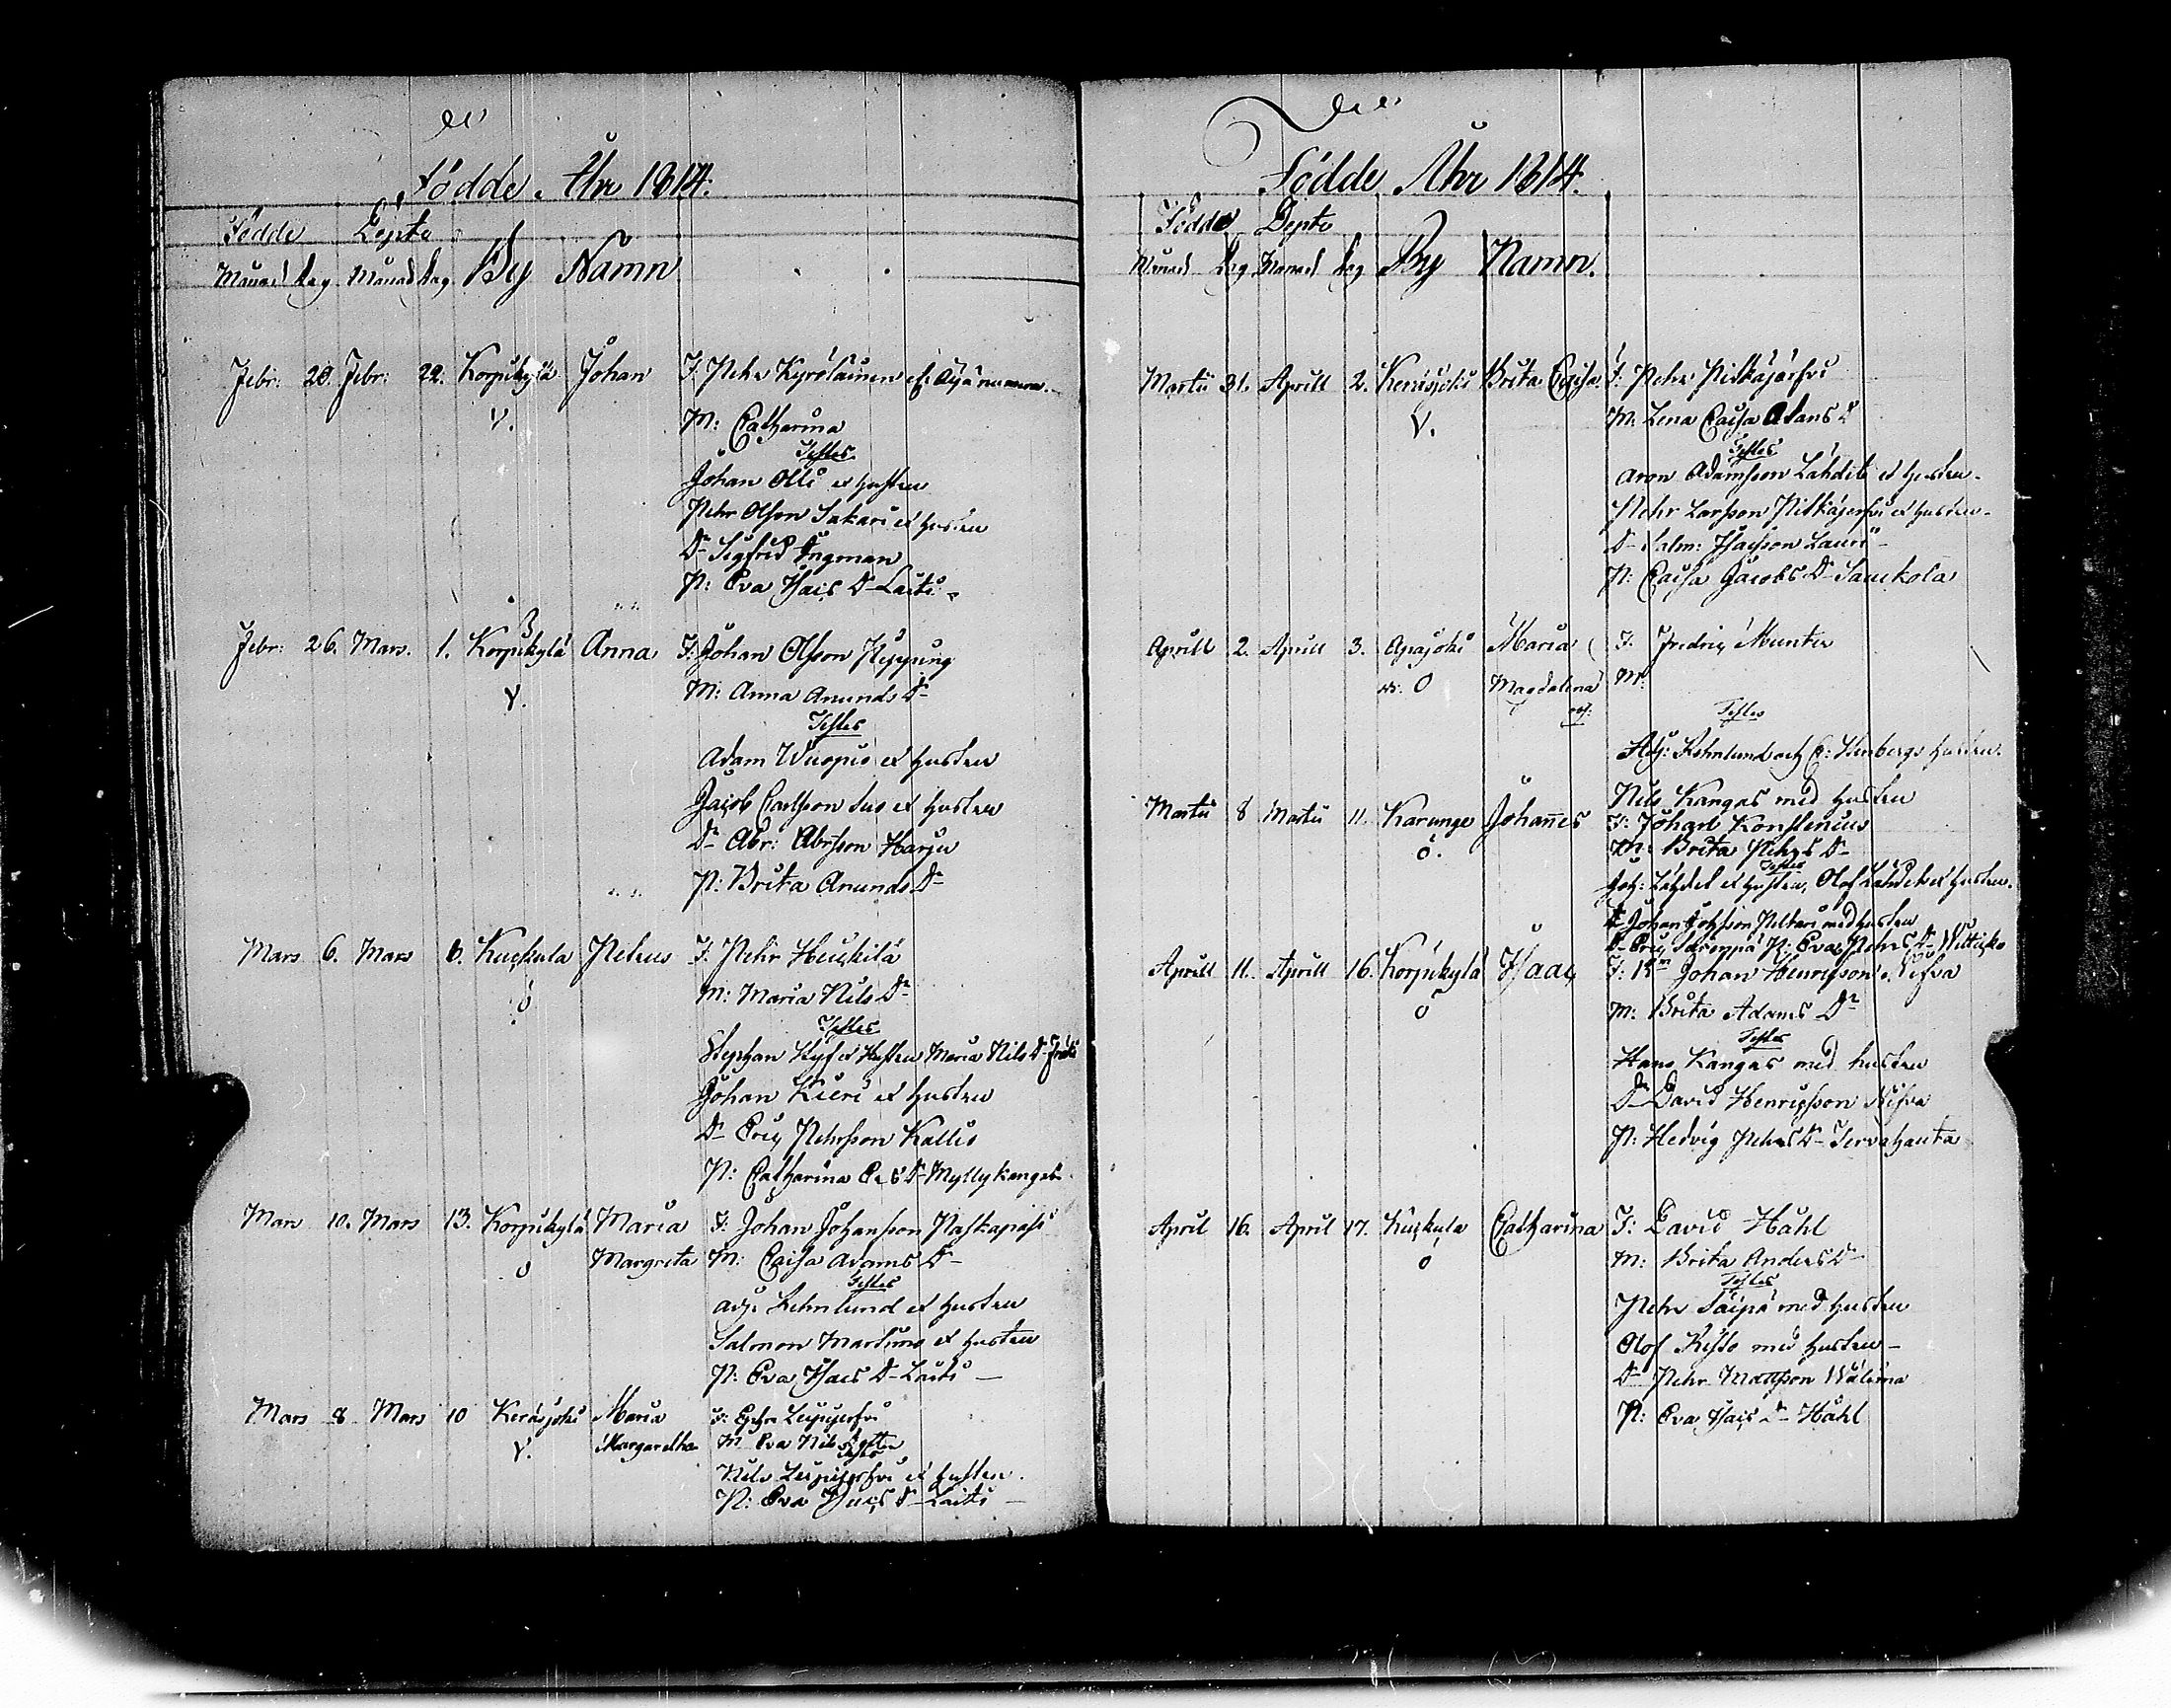 Födde Åhr 1814.
Födde Döpte
Månad dag Månad dag By Namn
Febr: 20. Febr: 22. Korpikylä Johan F: Pehr Kyröläinen
V. M: Catharina
Testes
Johan Olli et hustru
Pehr Olsson Sakari et hustru
Dr Sigfrid Engman
P: Eva Isacs Dr Laiti
Febr: 26. Mars. 1. Korpikylä Anna F: Johan Olsson Kyping
V. M: Anna Anunds Dr
Testes
Adam Wuopio et hustru
Jacob Carlsson Suo et hustru
Dr Abr: Abrsson Harju
P: Brita Anunds Dr
Mars 6. Mars 6. Kuckula Petrus F: Pehr Heickilä
ö M: Maria Nils Dr
Testes
Stephan Kyf et Hustru Maria Nils Dr
Johan Kieri et hustru
Dr Eric Pehrsson Kallio
P: Catharina Dr Myllykangas
Mars 10. Mars 13. Korpikylä Maria F: Johan Johansson
ö Margreta M: Caisa Adams Dr
Testes
Adj: Rehnlund et hustru
Salmon Martimo et hustru
P: Eva Isacs Dr Laiti
Mars 8 Mars 10 Keräsjoki Maria F: Ephr Leipijerfvi
V. Margaretha M Eva Nils dotter
Testes
Nils Leipijerfvi et hustru.
P: Eva Isacs Dr Laiti
Födde Åhr 1814.
Födde Döpte
Månad Dag Månad dag By Namn.
Martii 31. Aprill 2. Keräsjoki Brita Caisa F: Pehr Pitkäjärfvi
V. M: Lena Caisa Adams Dr
Testes
Aron Adamsson Lahdet et hustru
Pehr Larsson Pitkäjerfvi et hustru
Dr Salm: Isacsson Lauri
P: Caisa Jacobs Dr Sauckola
Aprill 2. Aprill 3. Apajoki Maria F: Fredric Munter
Ö Magdalena M:
Testes
Adj: Rehnlund och hustru.
Nils Kangas med hustru
Martii 8 Martii 11. Karunge Johannes F: Johan Konstenius
ö. M: Brita Pehrs Dr
Testes
Joh: Lahdet et hustru, Olof Lahdet et hustru.
Dr Johan Johsson Peltari med hustru
Dr Eric P: Eva Pehrs Dr Witticko
Aprill 11. Aprill 16. Korpikylä Isaac F: Johan Henricsson Nifva
ö M: Brita Adams Dr
Testes
Hans Kangas med hustru
Dr David Henricsson Nifva
P: Hedvig Pehrs Dr Tervahauta
April 16. April 17. Kuckula Catharina F: David Håhl
ö M: Brita Anders Dr
Testes
Pehr Taipa med hustru
Olof Risto med hustru
Dr Pehr Mattsson Wälima
P: Eva Isacs Dr Håhl